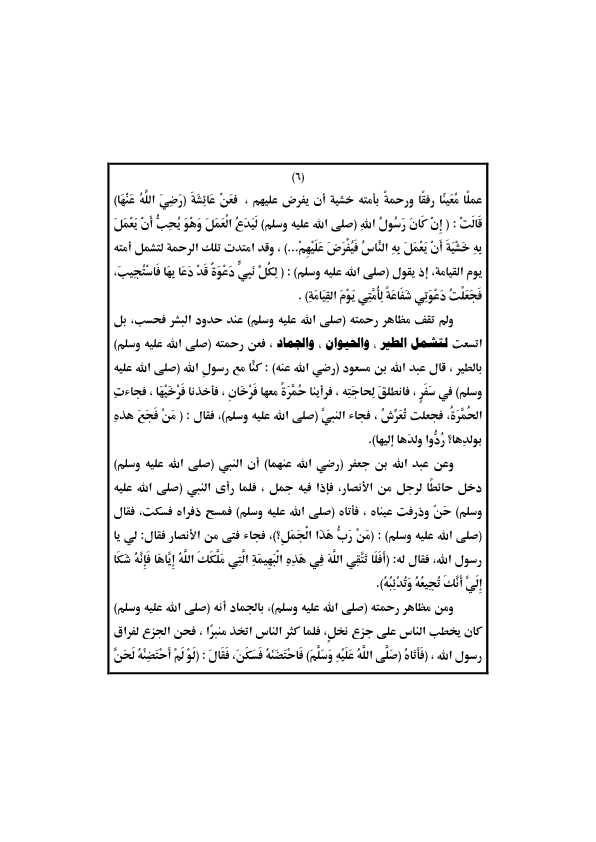 (٦)
عملًا مُعَينًا رفقًا ورحمةً بأمته خشية أن يفرض عليهم ، فعَنْ عَائِشَةَ (رَضِيَ اللَّهُ عَنْهَا)
قَالَتْ : ( إِنْ كَانَ رَسُولُ اللهِ (صلى الله عليه وسلم) لَيَدَعُ الْعَمَلَ وَهْوَ يُحِبُّ أَنْ يَعْمَلَ
بِهِ خَشْيَةَ أَنْ يَعْمَلَ بِهِ النَّاسُ فَيُفْرَضَ عَلَيْهِمْ...) ، وقد امتدت تلك الرحمة لتشمل أمته
يوم القيامة، إذ يقول (صلى الله عليه وسلم) : ( لِكُلِّ نَبِيٍّ دَعْوَةٌ قَدْ دَعَا بِهَا فَاسْتُجِيبَ،
فَجَعَلْتُ دَعْوَتِي شَفَاعَةً لِأُمَّتِي يَوْمَ القِيَامَةِ) .
ولم تقف مظاهر رحمته (صلى الله عليه وسلم) عند حدود البشر فحسب، بل
اتسعت لتشمل الطير ، والحيوان ، والجماد ، فعن رحمته (صلى الله عليه وسلم)
بالطير ، قال عبد الله بن مسعود (رضي الله عنه) : كنَّا مع رسولِ الله (صلى الله عليه
وسلم) في سَفَرٍ ، فانطلقَ لِحاجَتِه ، فرأينا حُمَّرَةً معها فَرْخَانِ ، فأخذنا فَرْخَيْهَا ، فجاءتِ
الحُمَّرَةُ، فجعلت تُعَرِّشُ ، فجاء النبيَّ (صلى الله عليه وسلم)، فقال : ( مَنْ فَجَعَ هذهِ
بولدِها؟ رُدُّوا ولدَها إليها).
وعن عبد الله بن جعفر (رضي الله عنهما) أن النبي (صلى الله عليه وسلم)
دخل حائطًا لرجل من الأنصار، فإذا فيه جمل ، فلما رأى النبي (صلى الله عليه
وسلم) حَنّ وذرفت عيناه ، فأتاه (صلى الله عليه وسلم) فمسح ذفراه فسكت، فقال
(صلى الله عليه وسلم) : (مَنْ رَبُّ هَذَا الْجَمَلِ؟)، فجاء فتى من الأنصار فقال: لي يا
رسول الله، فقال له: (أَفَلَا تَتَّقِي اللَّهَ فِي هَذِهِ الْبَهِيمَةِ الَّتِي مَلَّكَكَ اللَّهُ إِيَّاهَا فَإِنَّهُ شَكَا
إِلَيَّ أَنَّكَ تُجِيعُهُ وَتُدْئِبُهُ).
ومن مظاهر رحمته (صلى الله عليه وسلم)، بالجماد أنه (صلى الله عليه وسلم)
كان يخطب الناس على جزع نخلٍ، فلما كثر الناس اتخذ منبرًا ، فحن الجزع لفراق
رسول الله ، (فَأَتَاهُ (صَلَّى اللَّهُ عَلَيْهِ وَسَلَّمَ) فَاحْتَضَنَهُ فَسَكَنَ، فَقَالَ : (لَوْ لَمْ أَحْتَضِنْهُ لَحَنَّ